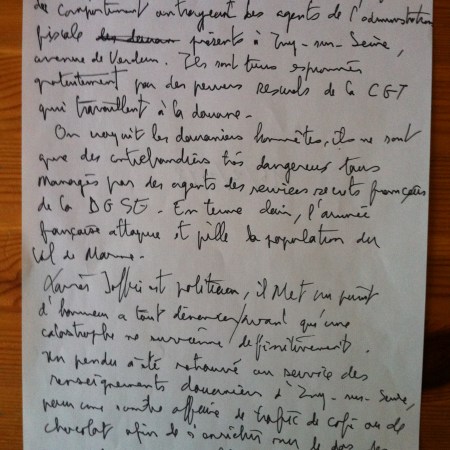 du comportement outrageant des agents de l'administration
fiscale présents à Ivry-sur-Seine,
avenue de Verdun. Ils sont tous espionnés
gratuitement par des pervers sexuels de la CGT
qui travaillent à la douane.
On croyait les douaniers honnêtes, ils ne sont
que des contrebandiers très dangereux tous
managés par des agents des services secrets français
de la DGSE. En terme clair, l'armée
française attaque et pille la population du
Val de Marne.
est politicien, il met un point
d'honneur a tout dénoncer avant qu'une
catastrophe ne survienne définitivement.
Un pendu a été retrouvé au service des
renseignements douaniers d'Ivry-sur-Seine,
pour une affaire de trafic de café ou de
chocolat afin de s'enrichir sur le dos